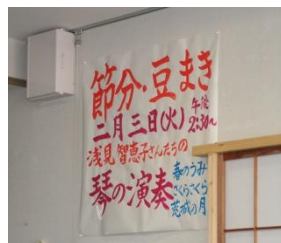 節分・豆まき
二月三日(火) 午後2:30〜
浅見智恵子さんたちの
琴の演奏
春のうみ
さくらさくら
荒城の月